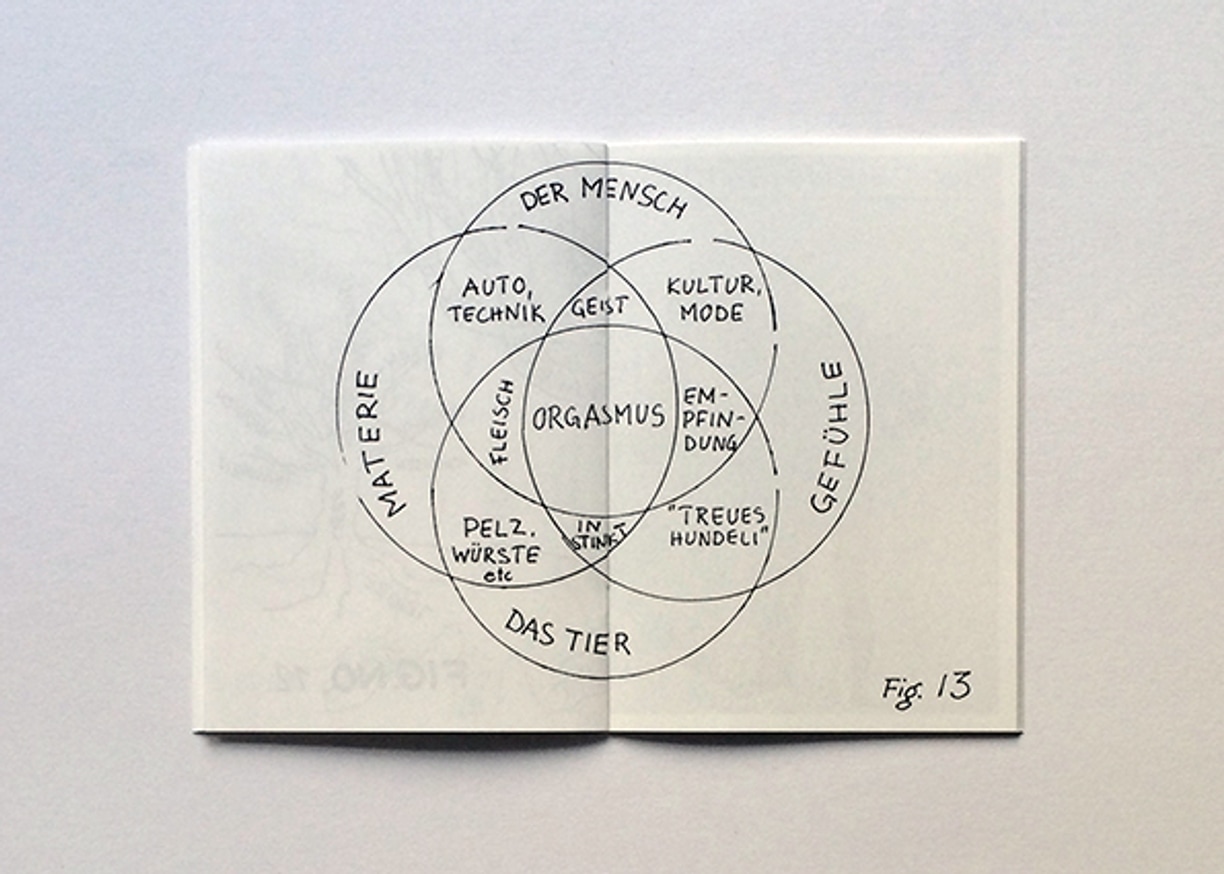 DER MENSCH
AUTO,
TECHNIK
GEIST
KULTUR,
MODE
MATERIE
FLEISCH
ORGASMUS
EM-
PFIN-
DUNG
GEFÜHLE
PELZ.
WÜRSTE
etc
IN
STINKT
"TREUES
HUNDELI"
DAS TIER
Fig. 13
FIG NO. 12